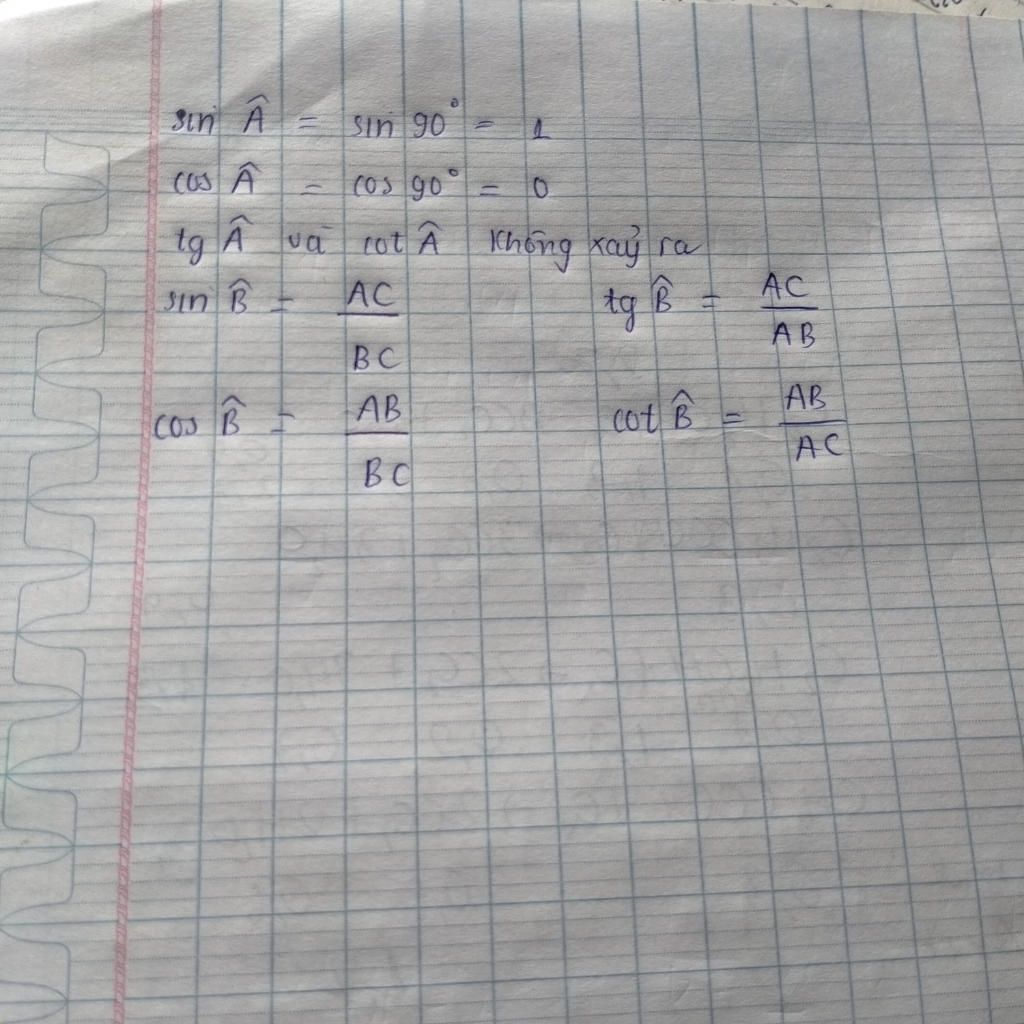 sin Â = sin 90° = 1
cos Â = cos 90° = 0
tg Â và cot Â không xảy ra
sin B̂ = AC / BC tg B̂ = AC / AB
cos B̂ = AB / BC cot B̂ = AB / AC